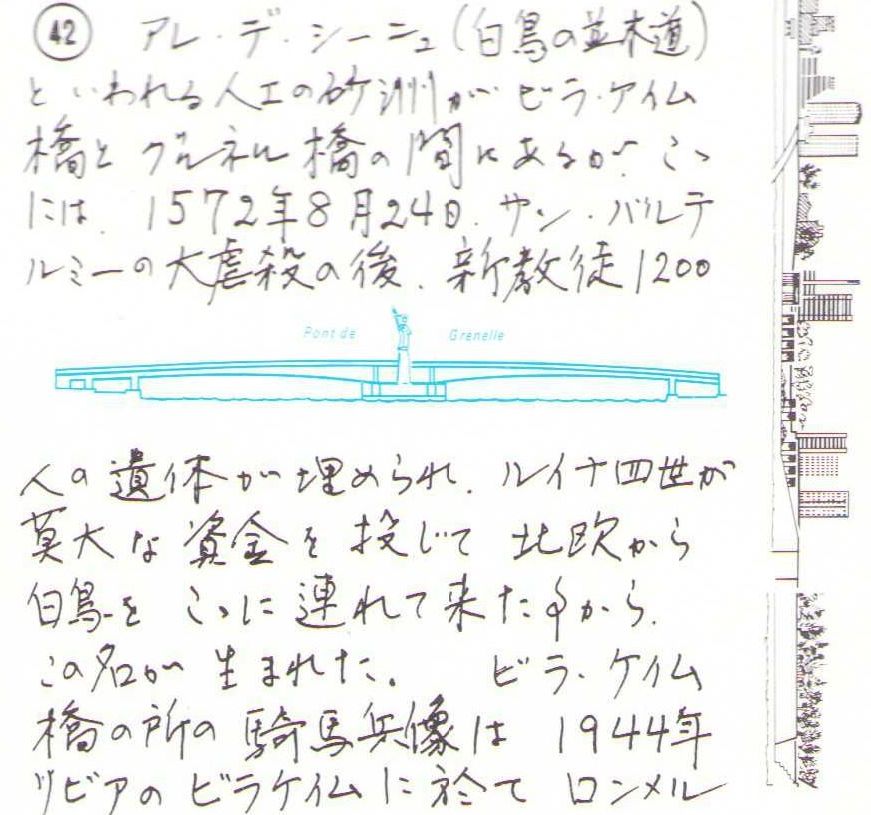 42 アレ・デ・シーニュ(白鳥の並木道)
といわれる人工の砂洲が ビラ・アイム
橋と グルネル橋の間にあるが、こゝ
には、1572年8月24日、サン・バルテ
ルミーの大虐殺の後、新教徒1200
Pont de Grenelle
人の遺体が埋められ、ルイ十四世が
莫大な資金を投じて 北欧から
白鳥を こゝに連れて来た事から、
この名が生まれた。 ビラ・ケイム
橋の所の騎馬兵像は 1944年
リビアの ビラケイムに於て ロンメル